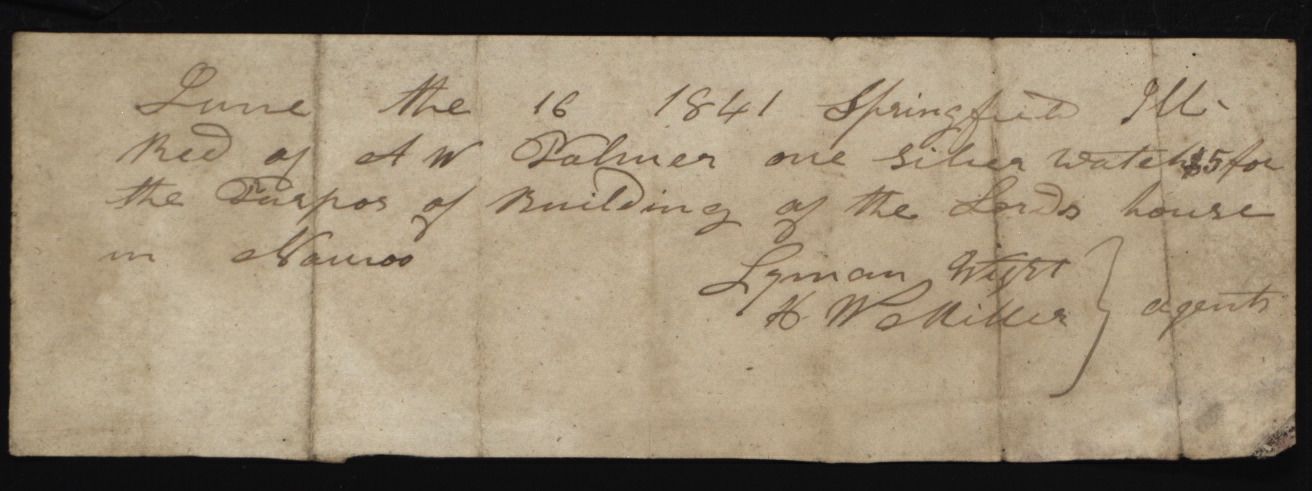 June the 16 1841 Springfield Ill.
Recd of A W Palmer one Silver watch $5 for
the Purpos of Building of the Lords house
in Nauvoo
Lyman Wight
H W Miller } agents